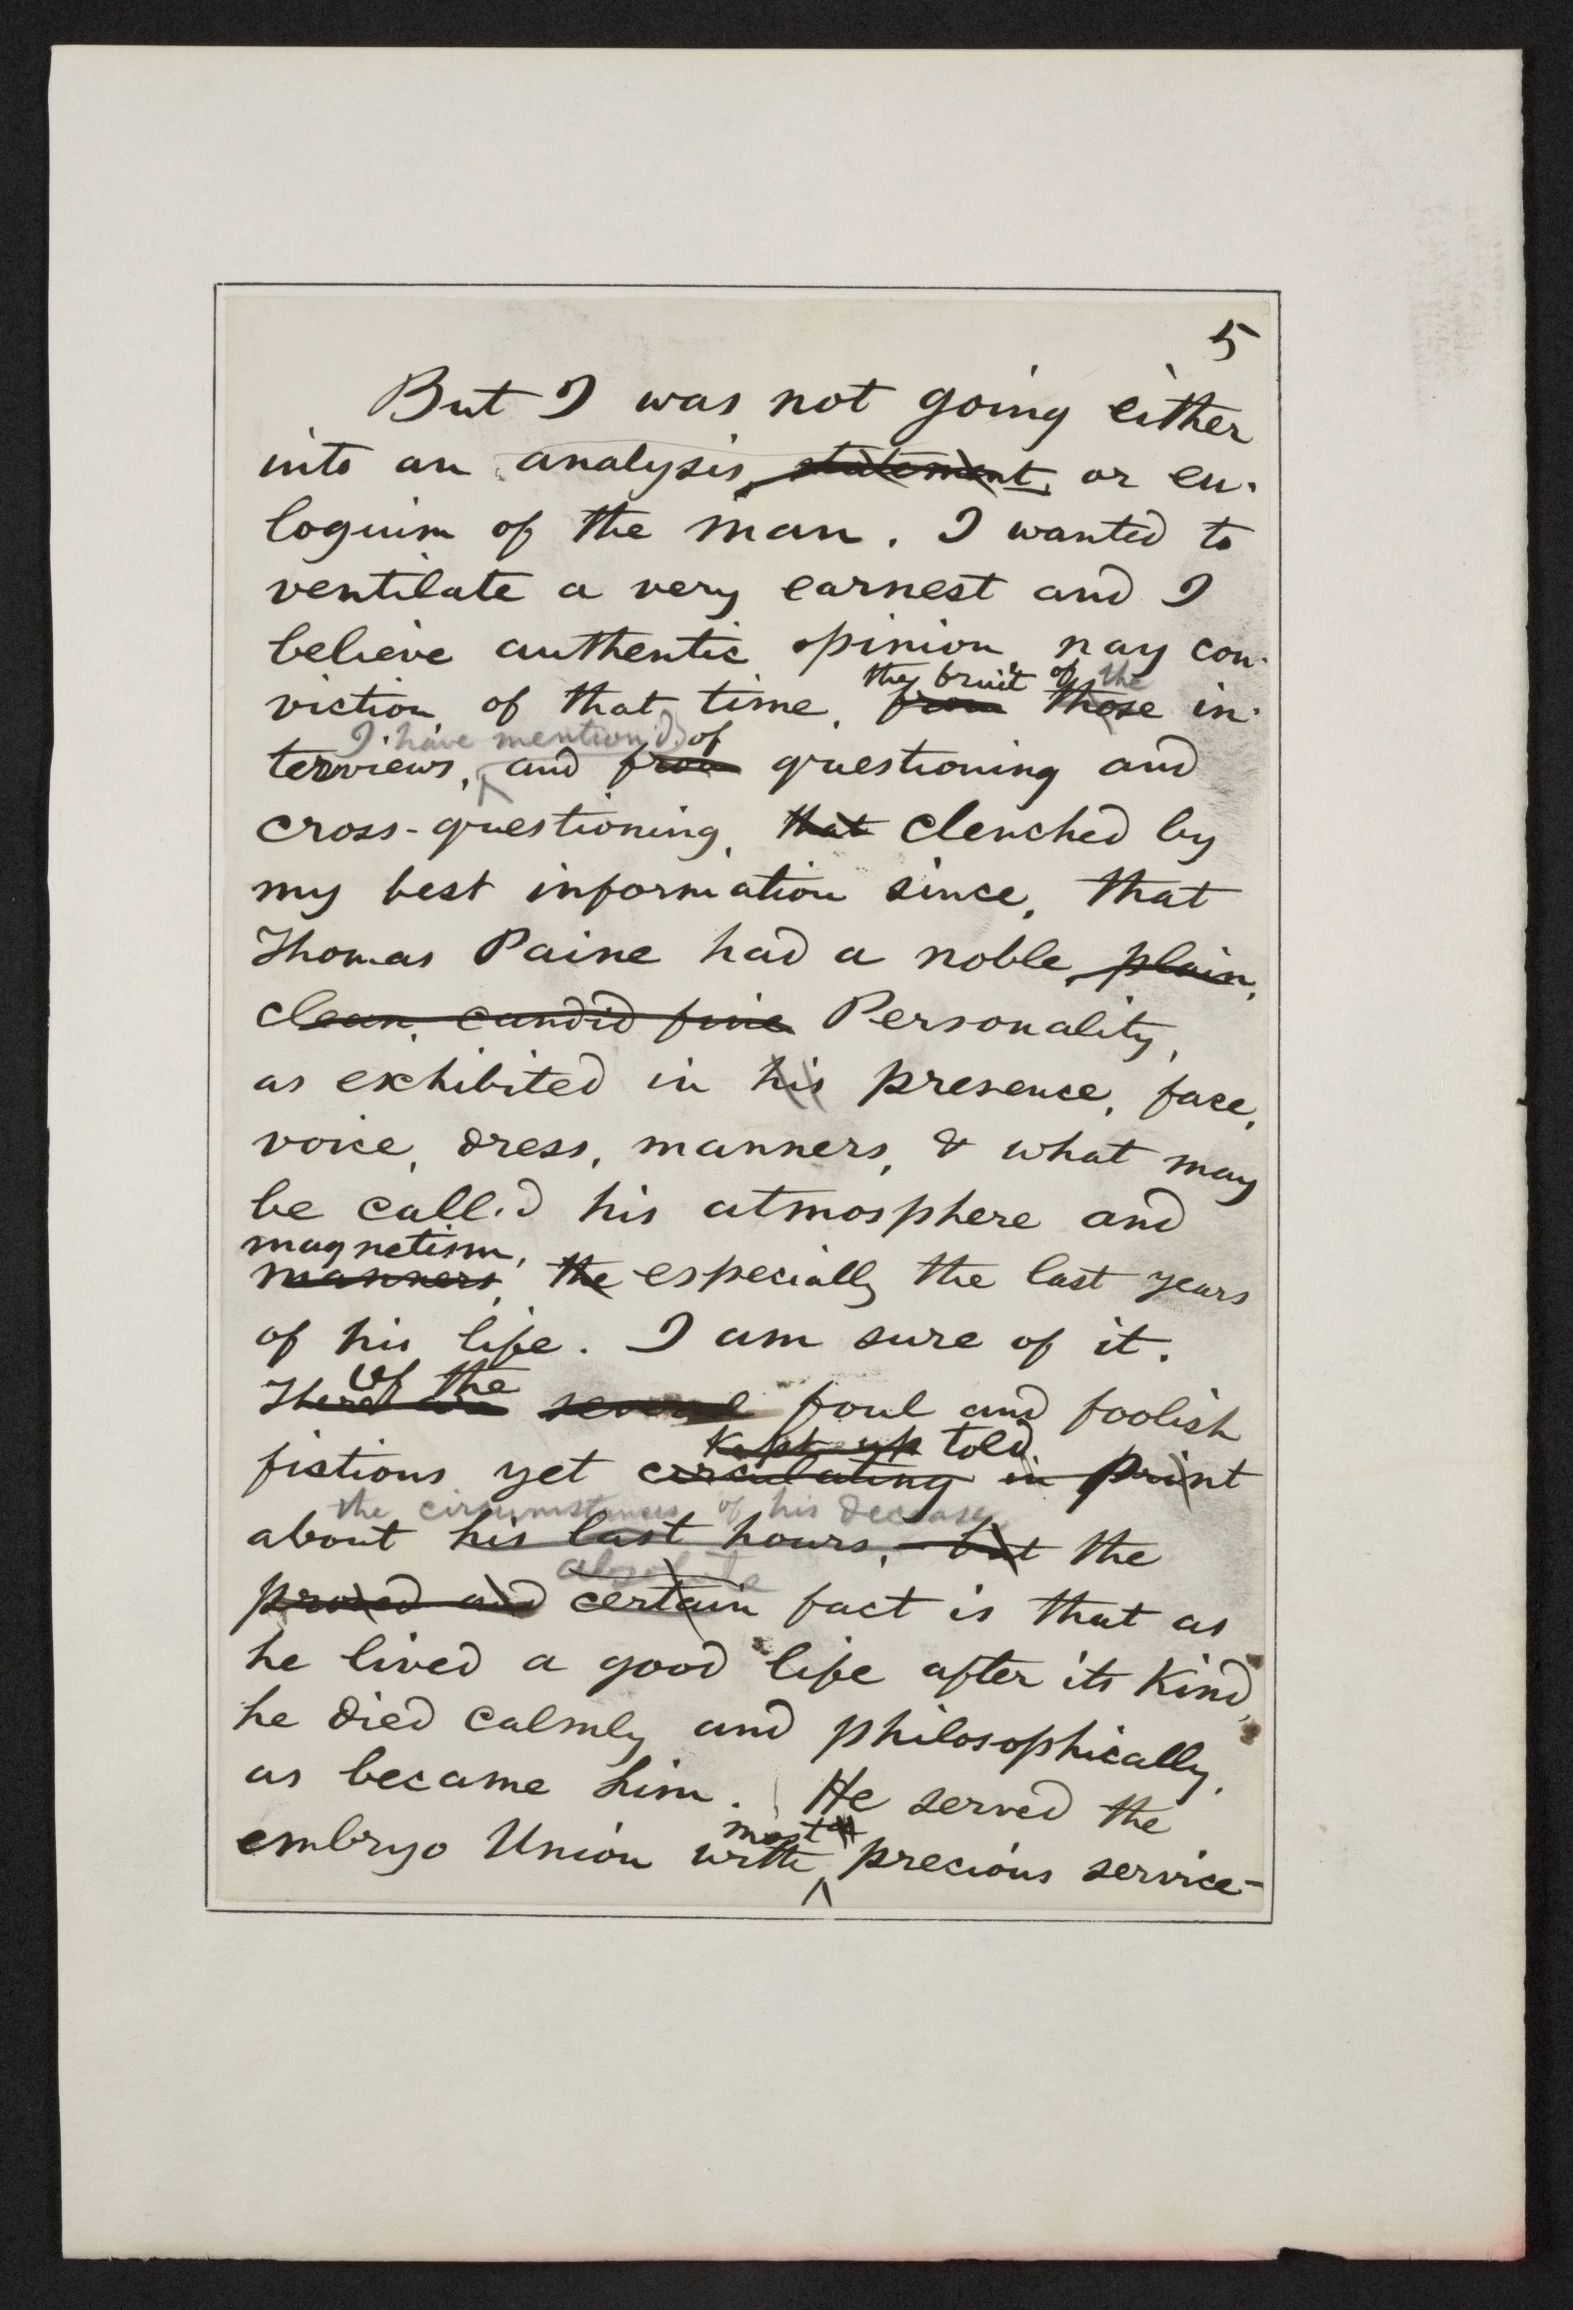 5
But I was not going either
into an analysis, statement, or eu-
logium of the man. I wanted to
ventilate a very earnest and I
believe authentic opinion nay con-
the fruit of the
viction, of that time, from those in-
I have mention'd, of
terviews, and from questioning and
cross-questioning, that clenched by
my best information since, that
Thomas Paine had a noble, plain,
clean, candid fine Personality,
as exhibited in his presence, face,
voice, dress, manners, & what may
be call'd his atmosphere and
magnetism,
manners, the especially the last years
of his life. I am sure of it.
Of the
There are several foul and foolish
Kept up told
fictions yet circulating in print
the circumstances of his decease,
about his last hours, but the
absolute
proved and certain fact is that as
he lived a good life after its kind,
he died calmly and philosophically,
as became him. He served the
most
embryo Union with precious service-